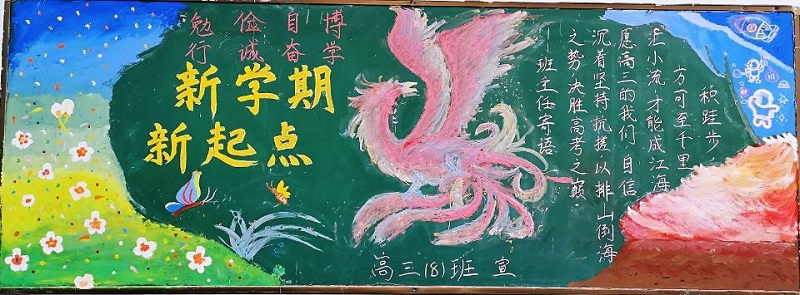 博学
自奋
俭诚
勉行
新学期
新起点
积跬步
方可至千里
汇小流,才能成江海
愿高三的我们,自信
沉着坚持抗搓,以排山倒海
之势,决胜高考之巅
——班主任寄语
高三(8)班 宣